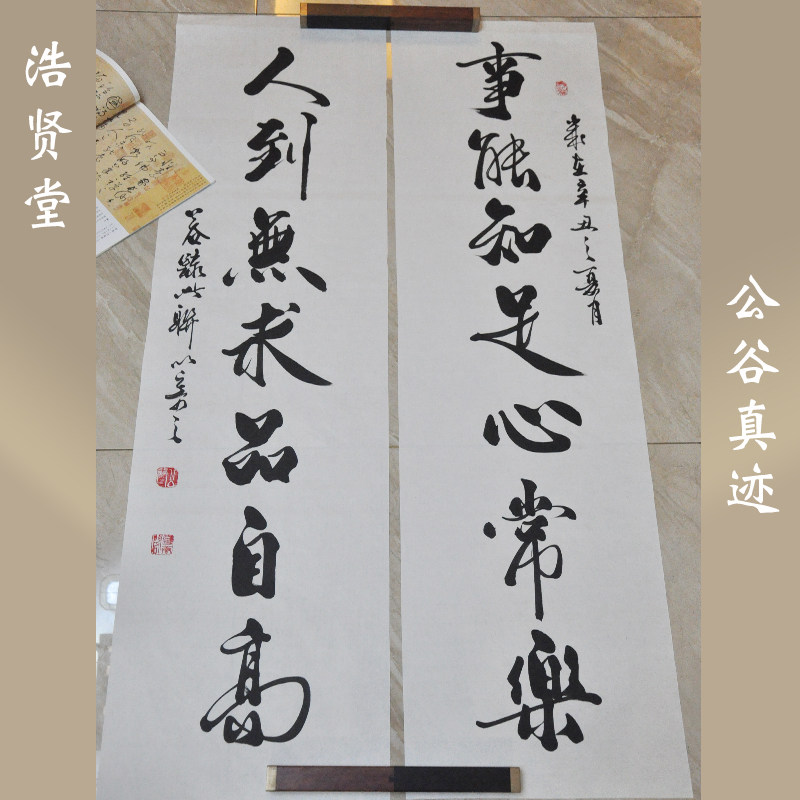 浩贤堂
事能知足心常樂
歲在辛丑之夏月
人到無求品自高
公谷真迹